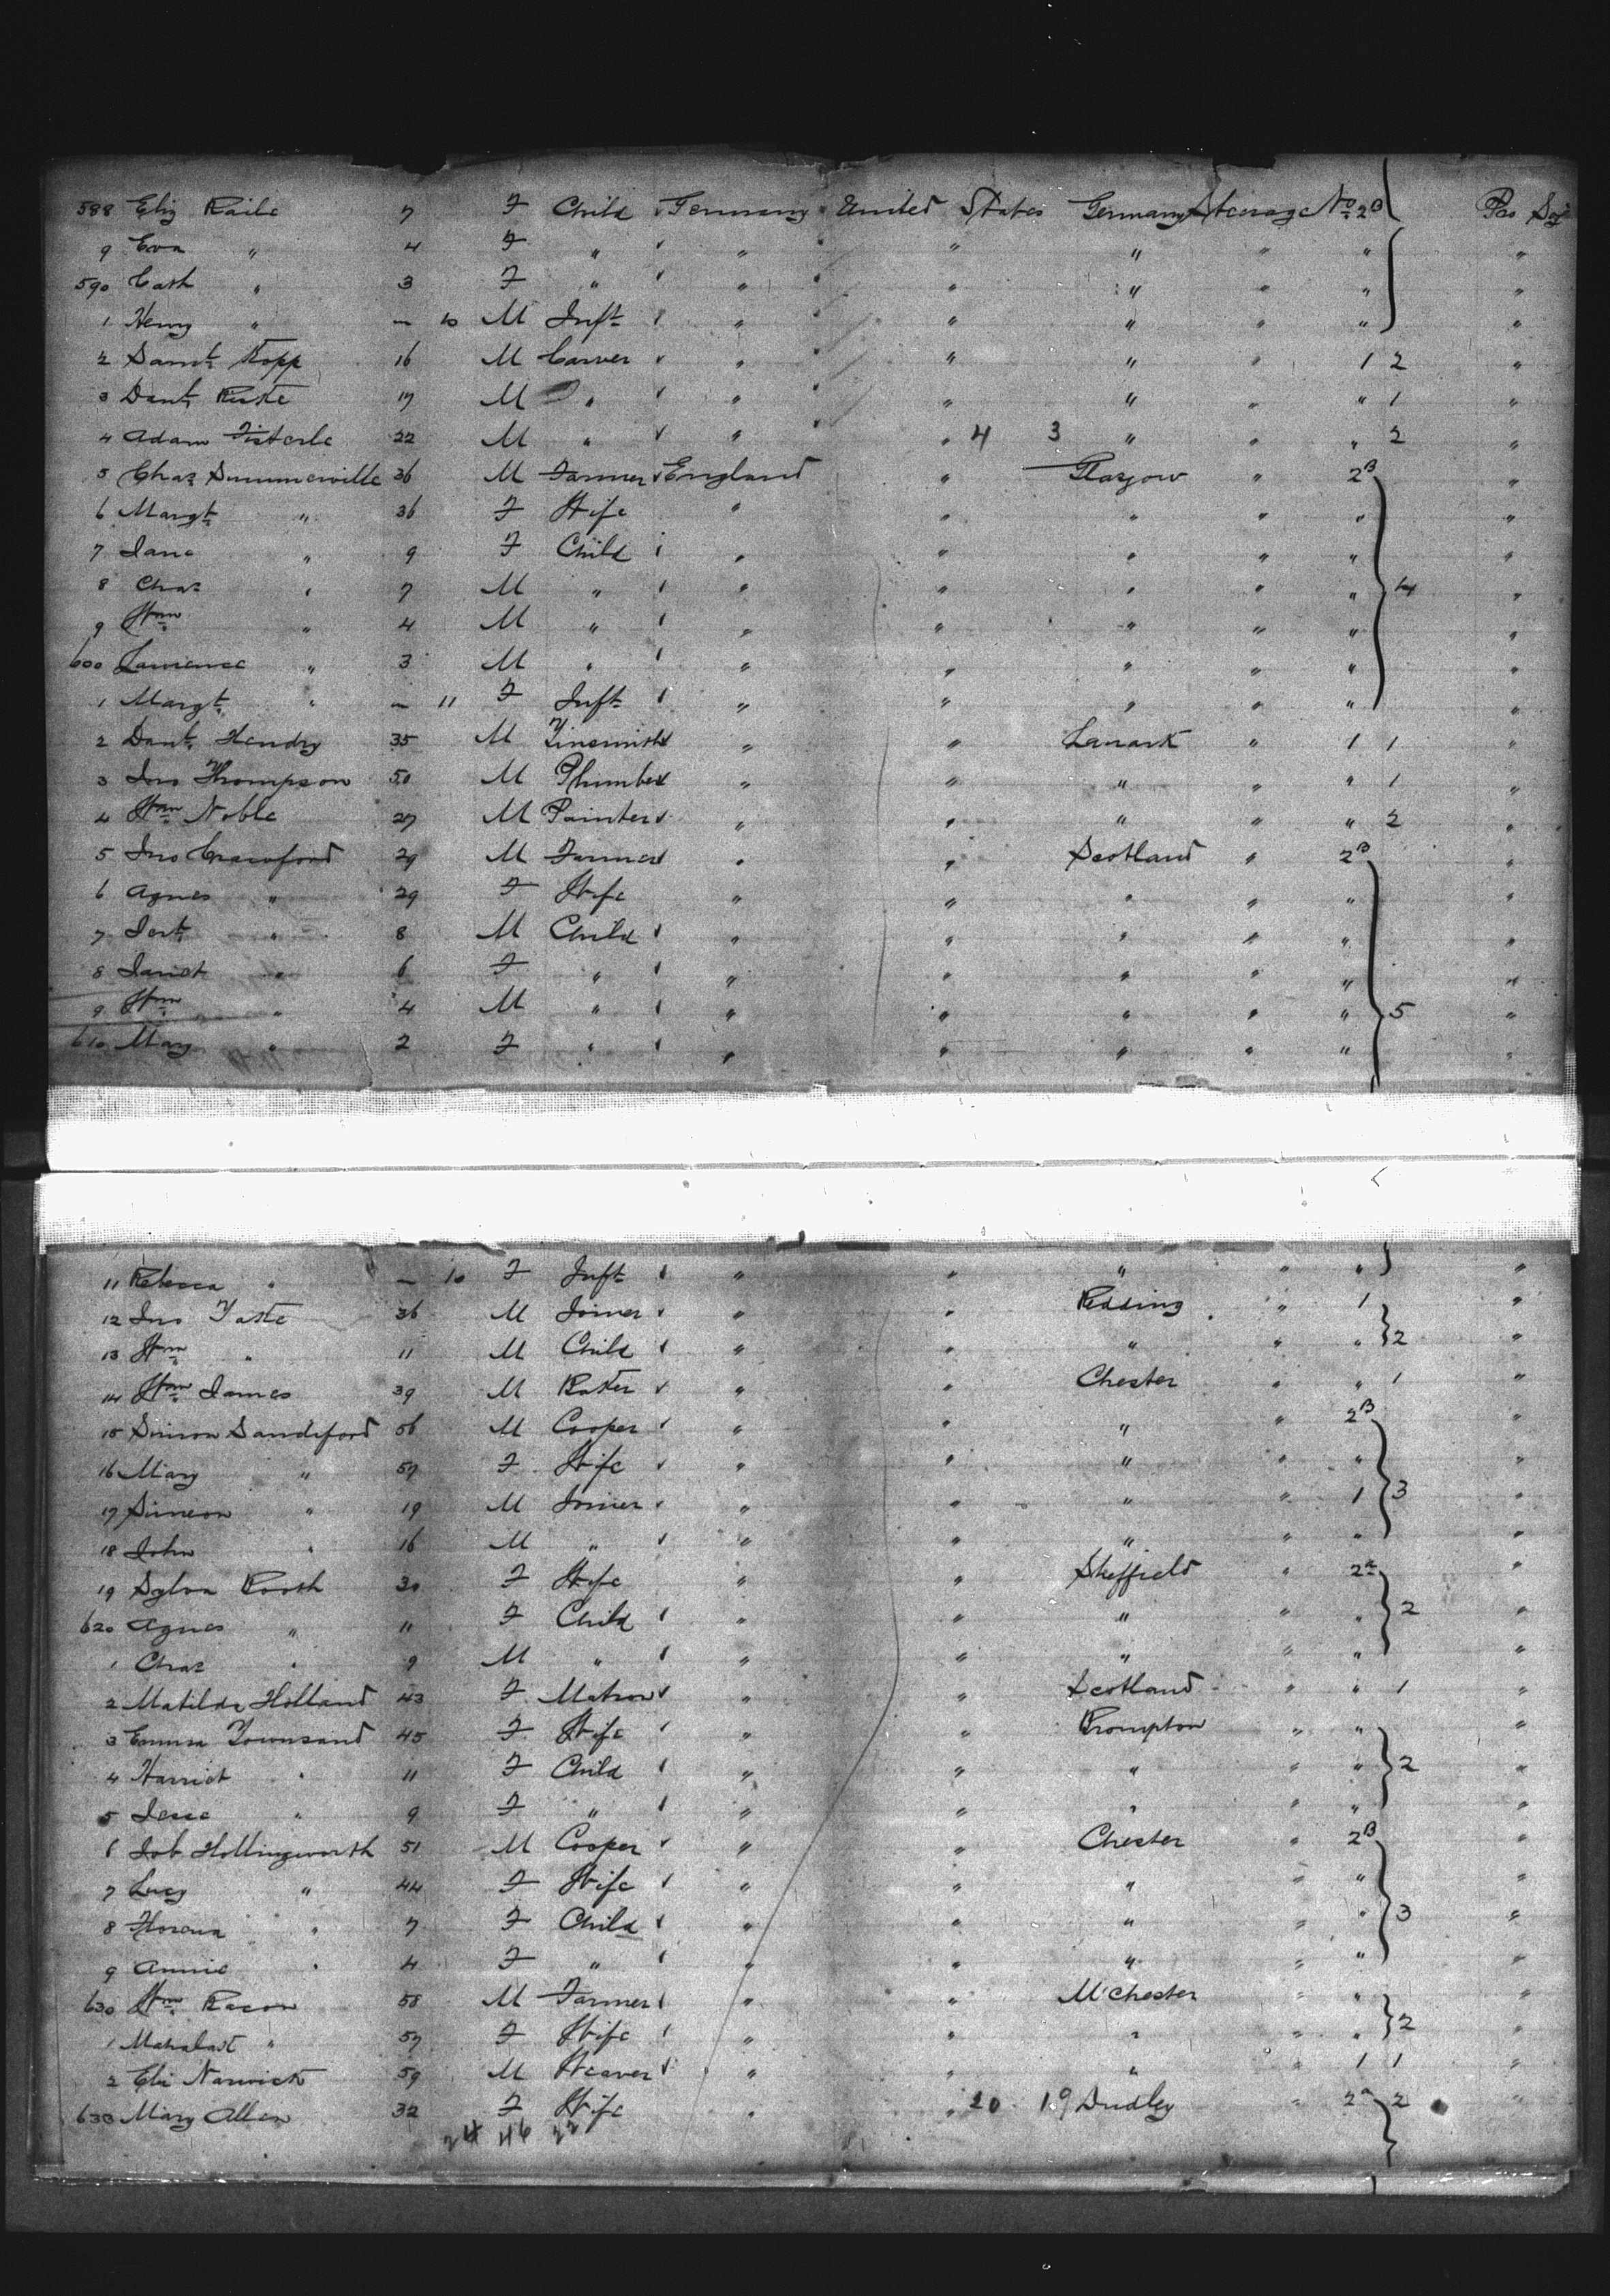 588 Eliz Raile 7 F Child ✓ Germany United States Germany Steerage No 2B Pro Soj
9 Eva " 4 F " ✓ " " " " " "
590 Cath " 3 F " ✓ " " " " " "
1 Henry " — 10 M Inft ✓ " " " " " "
2 Saml Kopp 16 M Carver ✓ " " " 1 2 "
3 Danl 17 M " ✓ " " " " " 1 "
4 Adam Fisterle 22 M " ✓ " " 4 3 " " " 2 "
5 Chas Summerville 36 M Farmer ✓ England " Glasgow " 2B "
6 Margt " 36 F Wife " " " " " "
7 Jane " 9 F Child " " " " " "
8 Chas " 7 M " " " " " " 4 "
9 Wm " 4 M " " " " " " "
600 Lawrence " 3 M " " " " " " "
1 Margt " — 11 F Inft " " " " " "
2 Danl Hendry 35 M Tinsmith ✓ " " Lanark " 1 1 "
3 Jno Thompson 50 M Plumber ✓ " " " " " 1 "
4 Wm Noble 27 M Painter ✓ " " " " " 2 "
5 Jno Crawford 29 M Farmer ✓ " " Scotland " 2B "
6 Agnes " 29 F Wife " " " " " "
7 " 8 M Child ✓ " " " " " "
8 Janet " 6 F " ✓ " " " " " "
9 Wm " 4 M " ✓ " " " " " 5 "
610 Mary " 2 F " ✓ " " " " " "
11 Rebecca " — 10 F Inft ✓ " " " " " "
12 Jno Taste 36 M Joiner ✓ " " Redding " 1 "
13 Wm " 11 M Child ✓ " " " " " 2 "
14 Wm James 39 M Baker ✓ " " Chester " " 1 "
15 Simon Sandiford 56 M Cooper ✓ " " " " 2B "
16 Mary " 57 F Wife ✓ " " " " " "
17 Simeon " 19 M Joiner ✓ " " " " 1 3 "
18 John " 16 M " ✓ " " " " " "
19 Sylva Booth 30 F Wife " " Sheffield " 2a "
620 Agnes " 11 F Child ✓ " " " " " 2 "
1 Chas " 9 M " ✓ " " " " " "
2 Matilda Holland 43 F Matron ✓ " " Scotland " " 1 "
3 Emma Townsand 45 F Wife ✓ " " Brompton " " "
4 Harriet " 11 F Child ✓ " " " " " 2 "
5 Jesse " 9 F " ✓ " " " " " "
6 Job Hollingworth 51 M Cooper ✓ " " Chester " 2B "
7 Lucy " 44 F Wife ✓ " " " " " "
8 " 7 F Child ✓ " " " " " 3 "
9 Annie " 4 F " ✓ " " " " " "
630 Wm Bacon 58 M Farmer ✓ " " M'Chester " " "
1 " 57 F Wife ✓ " " " " " 2 "
2 Eli Narwick 59 M Weaver ✓ " " " " 1 1 "
633 Mary Allen 32 F Wife " " 20 19 Dudley " 2a 2 "
24 46 22